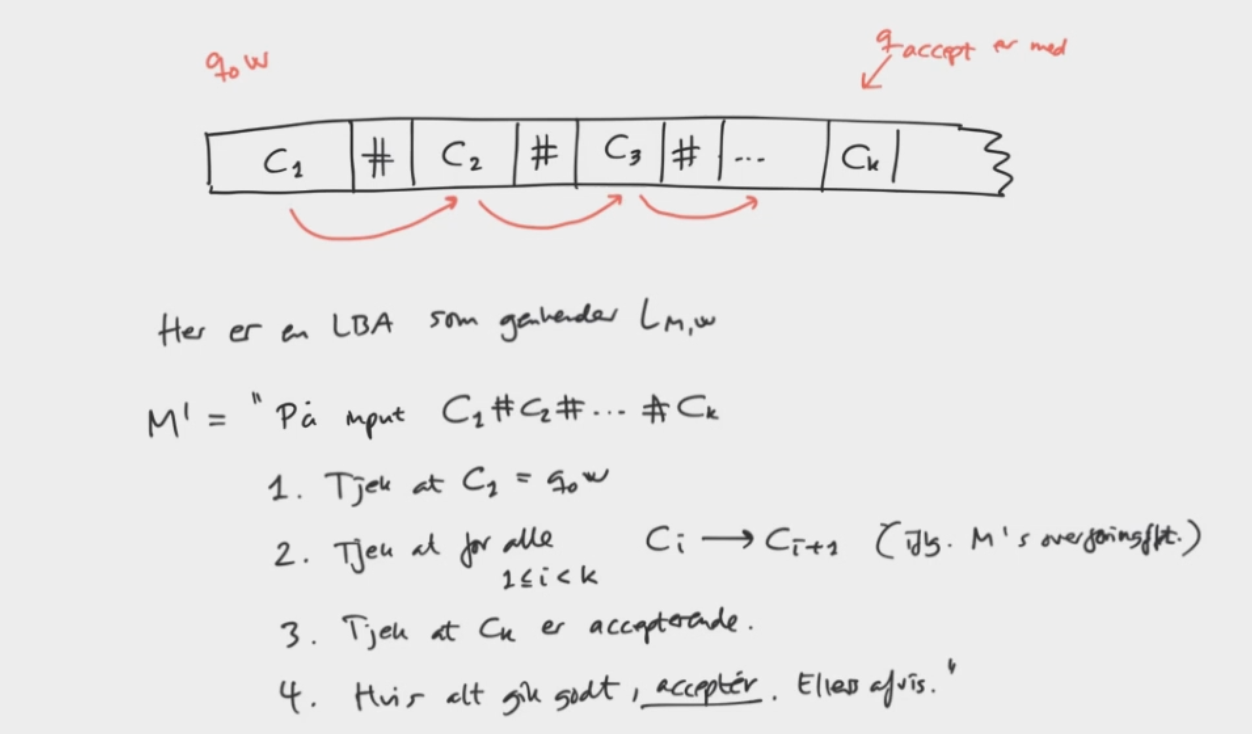 q₀w
q_accept er med
C₁ # C₂ # C₃ # ... Cₖ
Her er en LBA som genkender L_M,w
M' = "På input C₁#C₂#...#Cₖ
1. Tjek at C₁ = q₀w
2. Tjek at for alle Cᵢ → Cᵢ₊₁ (iflg. M's overføringsfkt.)
1≤i<k
3. Tjek at Cₖ er accepterende.
4. Hvis alt gik godt, acceptér. Ellers afvis."